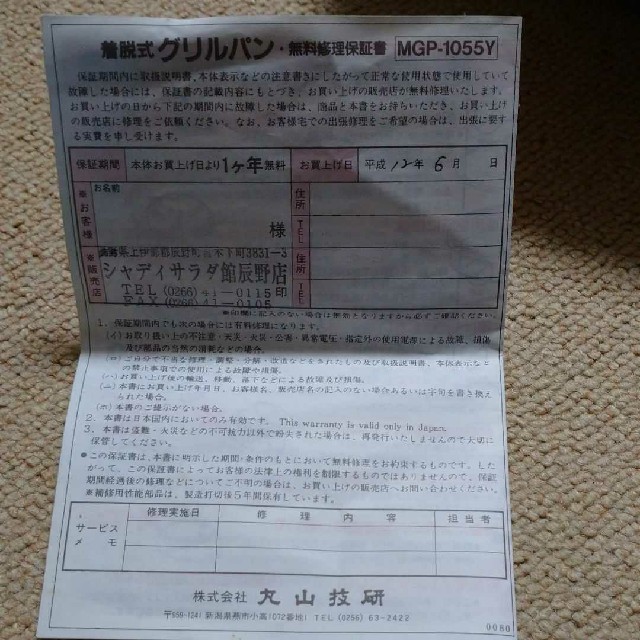 着脱式グリルパン・無料修理保証書 MGP-1055Y
保証期間内に取扱説明書、本体表示などの注意書きにしたがって正常な使用状態で使用していて
故障した場合には、保証書の記載内容にもとづき、お買い上げの販売店が無料修理いたします。
お買い上げの日から下記の期間内に故障した場合は、商品と本書をお持ちいただき、お買い上げ
の販売店に修理をご依頼ください。なお、お客様宅での出張修理をご希望の場合は、出張に要す
る実費を申し受けます。
保証期間 本体お買上げ日より1ヶ年無料 お買上げ日 平成12年6月 日
※お客様 お名前 様 住所 TEL
※販売店 辰野町 3831-3 住所 TEL
シャディサラダ館辰野店
TEL (0266) 41-0115日
FAX (0266) 41-0116
※印欄に記入のない場合は無効となりますから必ずご確認ください。
1. 保証期間内でも次の場合には有料修理になります。
(イ)お取り扱い上の不注意・天災・火災・公害・異常電圧・指定外の使用電源による故障、損傷
及び部品の当然の消耗などの場合。
(ロ)ご自分で不当な修理・調整・分解・改造などをされたもの及び取扱説明書、本体表示など
の禁止事項での使用による故障や損傷。
(ハ)お買い上げ後の輸送、移動、落下などによる故障及び損傷。
(ニ)本書にお買上げ年月日、お客様名、販売店名の記入のない場合あるいは字句を書き換え
られた場合。
(ホ)本書のご提示がない場合。
2. 本書は日本国内においてのみ有効です。 This warranty is valid only in Japan.
3. 本書は盗難・火災などの不可抗力以外で紛失された場合は、再発行いたしませんので大切に
保管してください。
●この保証書は、本書に明示した期間・条件のもとにおいて無料修理をお約束するものです。した
がって、この保証書によってお客様の法律上の権利を制限するものではありませんので、保証
期間経過後の修理などについてご不明の場合は、お買い上げの販売店へお問い合わせください。
※補修用性能部品は、製造打切後5年間保有しています。
サービスメモ 修理実施日 修理内容 担当者
株式会社 丸山技研
〒959-1241 新潟県燕市小高1072番地1 TEL (0256) 63-2422
0080